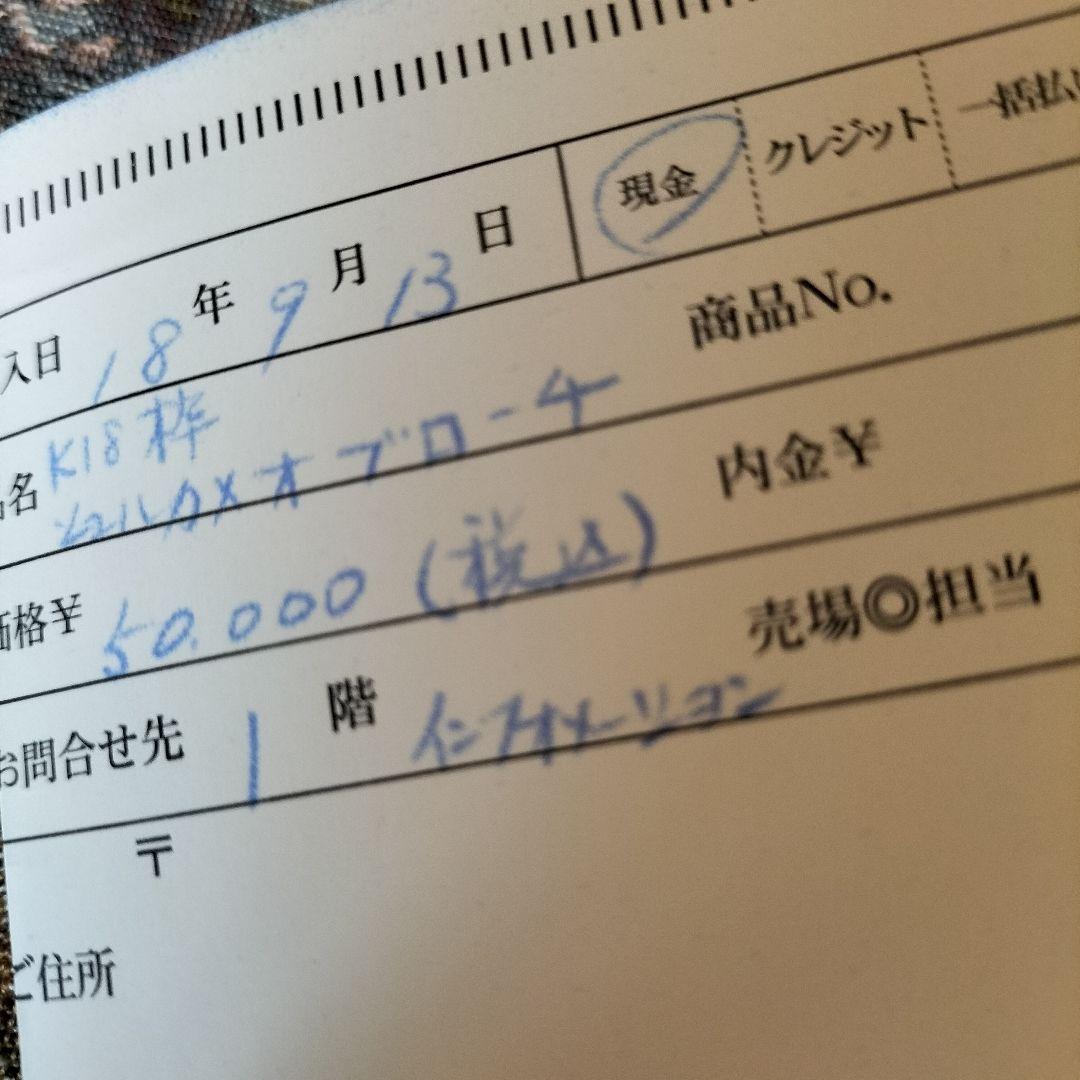 現金 クレジット 一括払
入日 18年9月13日
名 K18枠 商品No.
シェルカメオブローチ
価格¥ 50.000(税込) 内金¥
お問合せ先 1階 インフォメーション 売場◎担当
〒
ご住所